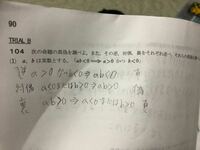 90
TRIAL B
104 次の命題の真偽を調べよ。また，その逆，対偶，裏をそれぞれ述べ，それらの真偽を
(1) a，b は実数とする。「ab<0 ⟹ a>0 かつ b<0」
逆 a>0 かつ b<0 ⇒ ab<0 真
対偶 a≦0 または b≧0 ⇒ ab≧0 偽
裏 ab≧0 ⇒ a≦0 または b≧0 真